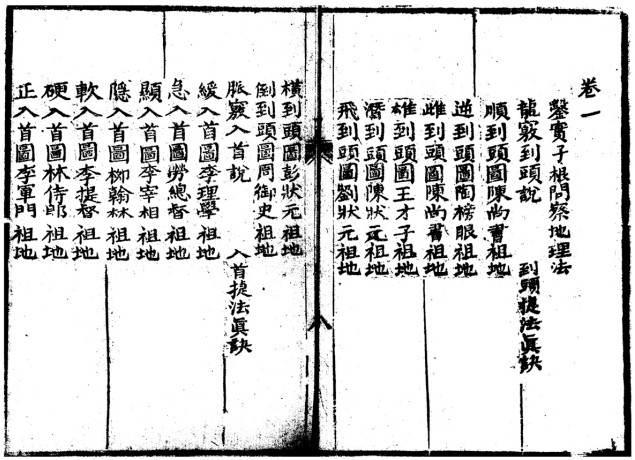 卷一
鑿實子根問察地理法
龍竅到頭說 到頭捷法眞訣
順到頭圖陳尚書祖地
逆到頭圖陶榜眼祖地
雌到頭圖陳尚書祖地
雄到頭圖王才子祖地
潛到頭圖陳狀元祖地
飛到頭圖劉狀元祖地
八
橫到頭圖彭狀元祖地
倒到頭圖周御史祖地
脈竅入首說 入首捷法眞訣
緩入首圖李理學祖地
急入首圖勞總督祖地
顯入首圖李宰相祖地
隱入首圖柳翰林祖地
軟入首圖李提督祖地
硬入首圖林侍郎祖地
正入首圖李軍門祖地